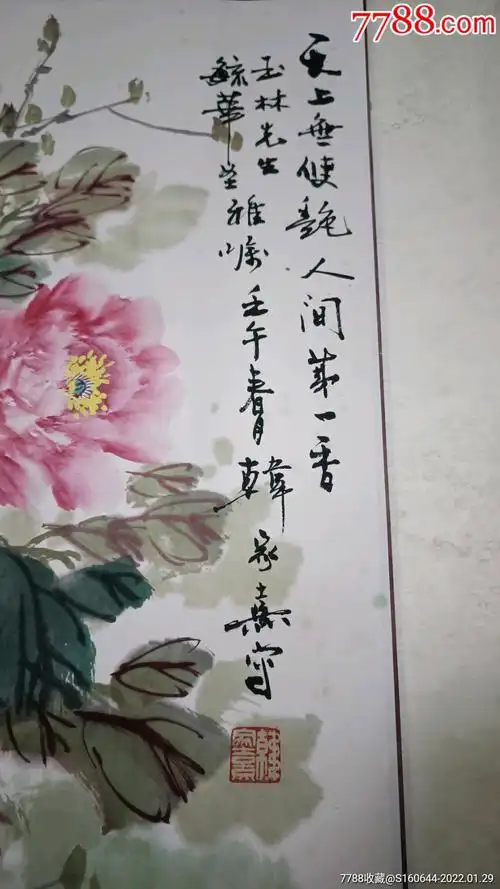 7788.com
天上無艷人間第一香
玉林先生
毓華雅嘱壬午春月韓家寫
7788收藏@S160644-2022.01.29